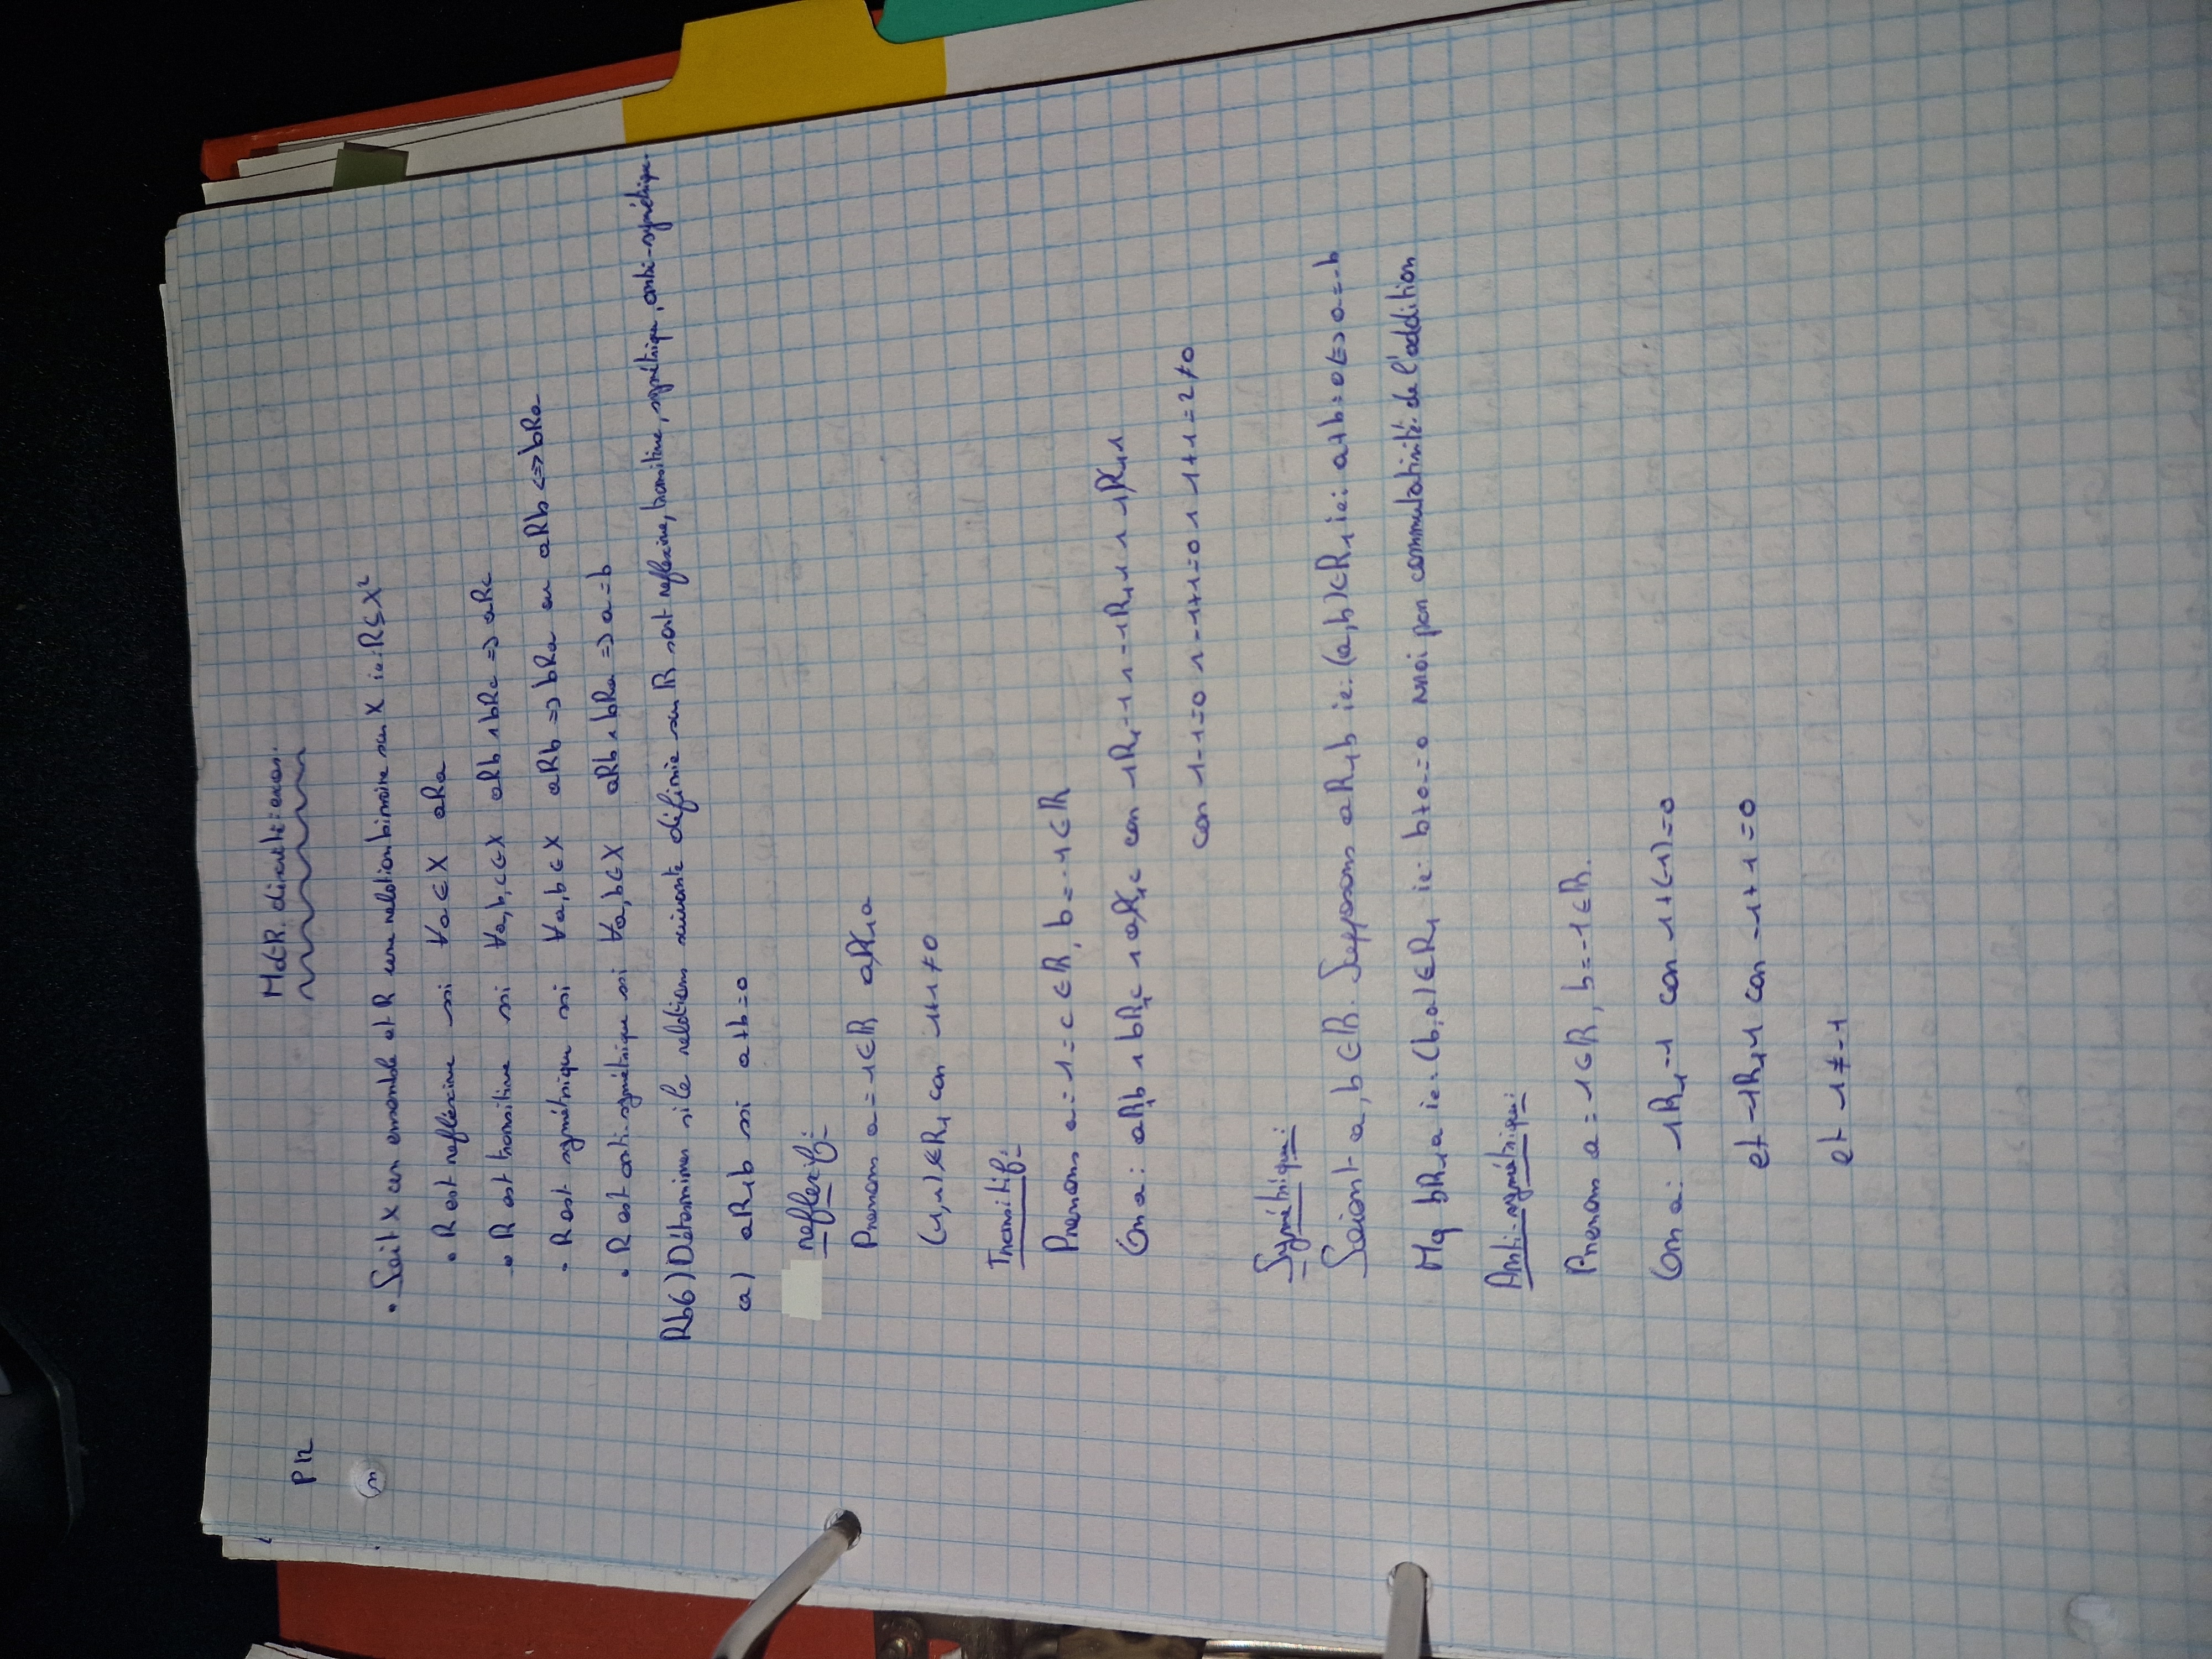 Math. discrète: exos.
P12
• Soit X un ensemble et R une relation binaire sur X ie: R⊆X²
• R est refléxive ssi ∀a∈X aRa
• R est transitive ssi ∀a,b,c∈X aRb ∧ bRc => aRc
• R est symétrique ssi ∀a,b∈X aRb => bRa ou aRb <=> bRa
• R est anti-symétrique ssi ∀a,b∈X aRb ∧ bRa => a=b
Rb6) Déterminer si le relations suivante définie sur ℝ sont reflexive, transitive, symétrique, anti-symétrique.
(a) aR₁b ssi a+b=0
reflexif:
Prenons a=1∈ℝ aR̸₁a
(1,1)∉R₁ car 1+1≠0
Transitif:
Prenons a=1=c∈ℝ, b=-1∈ℝ
On a: aR₁b ∧ bR₁c ∧ aR̸₁c car 1R₁-1 ∧ -1R₁1 ∧ 1R̸₁1
car 1-1=0 ∧ -1+1=0 ∧ 1+1=2≠0
Symétrique:
Soient a,b∈ℝ. Supposons aR₁b ie: (a,b)∈R₁ ie: a+b=0 <=> a=-b
Mq bR₁a ie: (b,a)∈R₁ ie: b+a=0 vrai par commutativité de l'addition
Anti-symétrique:
Prenons a=1∈ℝ, b=-1∈ℝ.
On a: 1R₁-1 car 1+(-1)=0
et -1R₁1 car -1+1=0
et 1≠-1